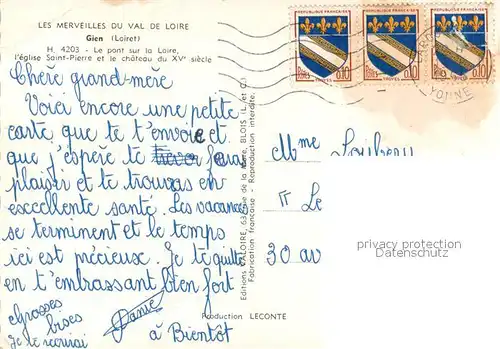 LES MERVEILLES DU VAL DE LOIRE
Gien (Loiret)
H. 4203 - Le pont sur la Loire,
l'église Saint-Pierre et le château du XVe siècle
Chère grand-mère
Voici encore une petite
carte que te t'envoie et
que j'espère te feras
plaisir et te trouvas en
escellente santé. Les vacances
se terminent et le temps
ici est précieux. Je te quitte
en t'embrassant bien fort
Grosses
bises
Je te
à Bientôt
Production LECONTE
Editions VALOIRE, BLOIS (L. et C.)
Fabrication française - Reproduction interdite.
REPUBLIQUE FRANÇAISE
POSTES 0,10
TROYES
REPUBLIQUE FRANÇAISE
POSTES 0,10
TROYES
REPUBLIQUE FRANÇAISE
0,10
YONNE
Mme
Le
30 av
privacy protection
Datenschutz